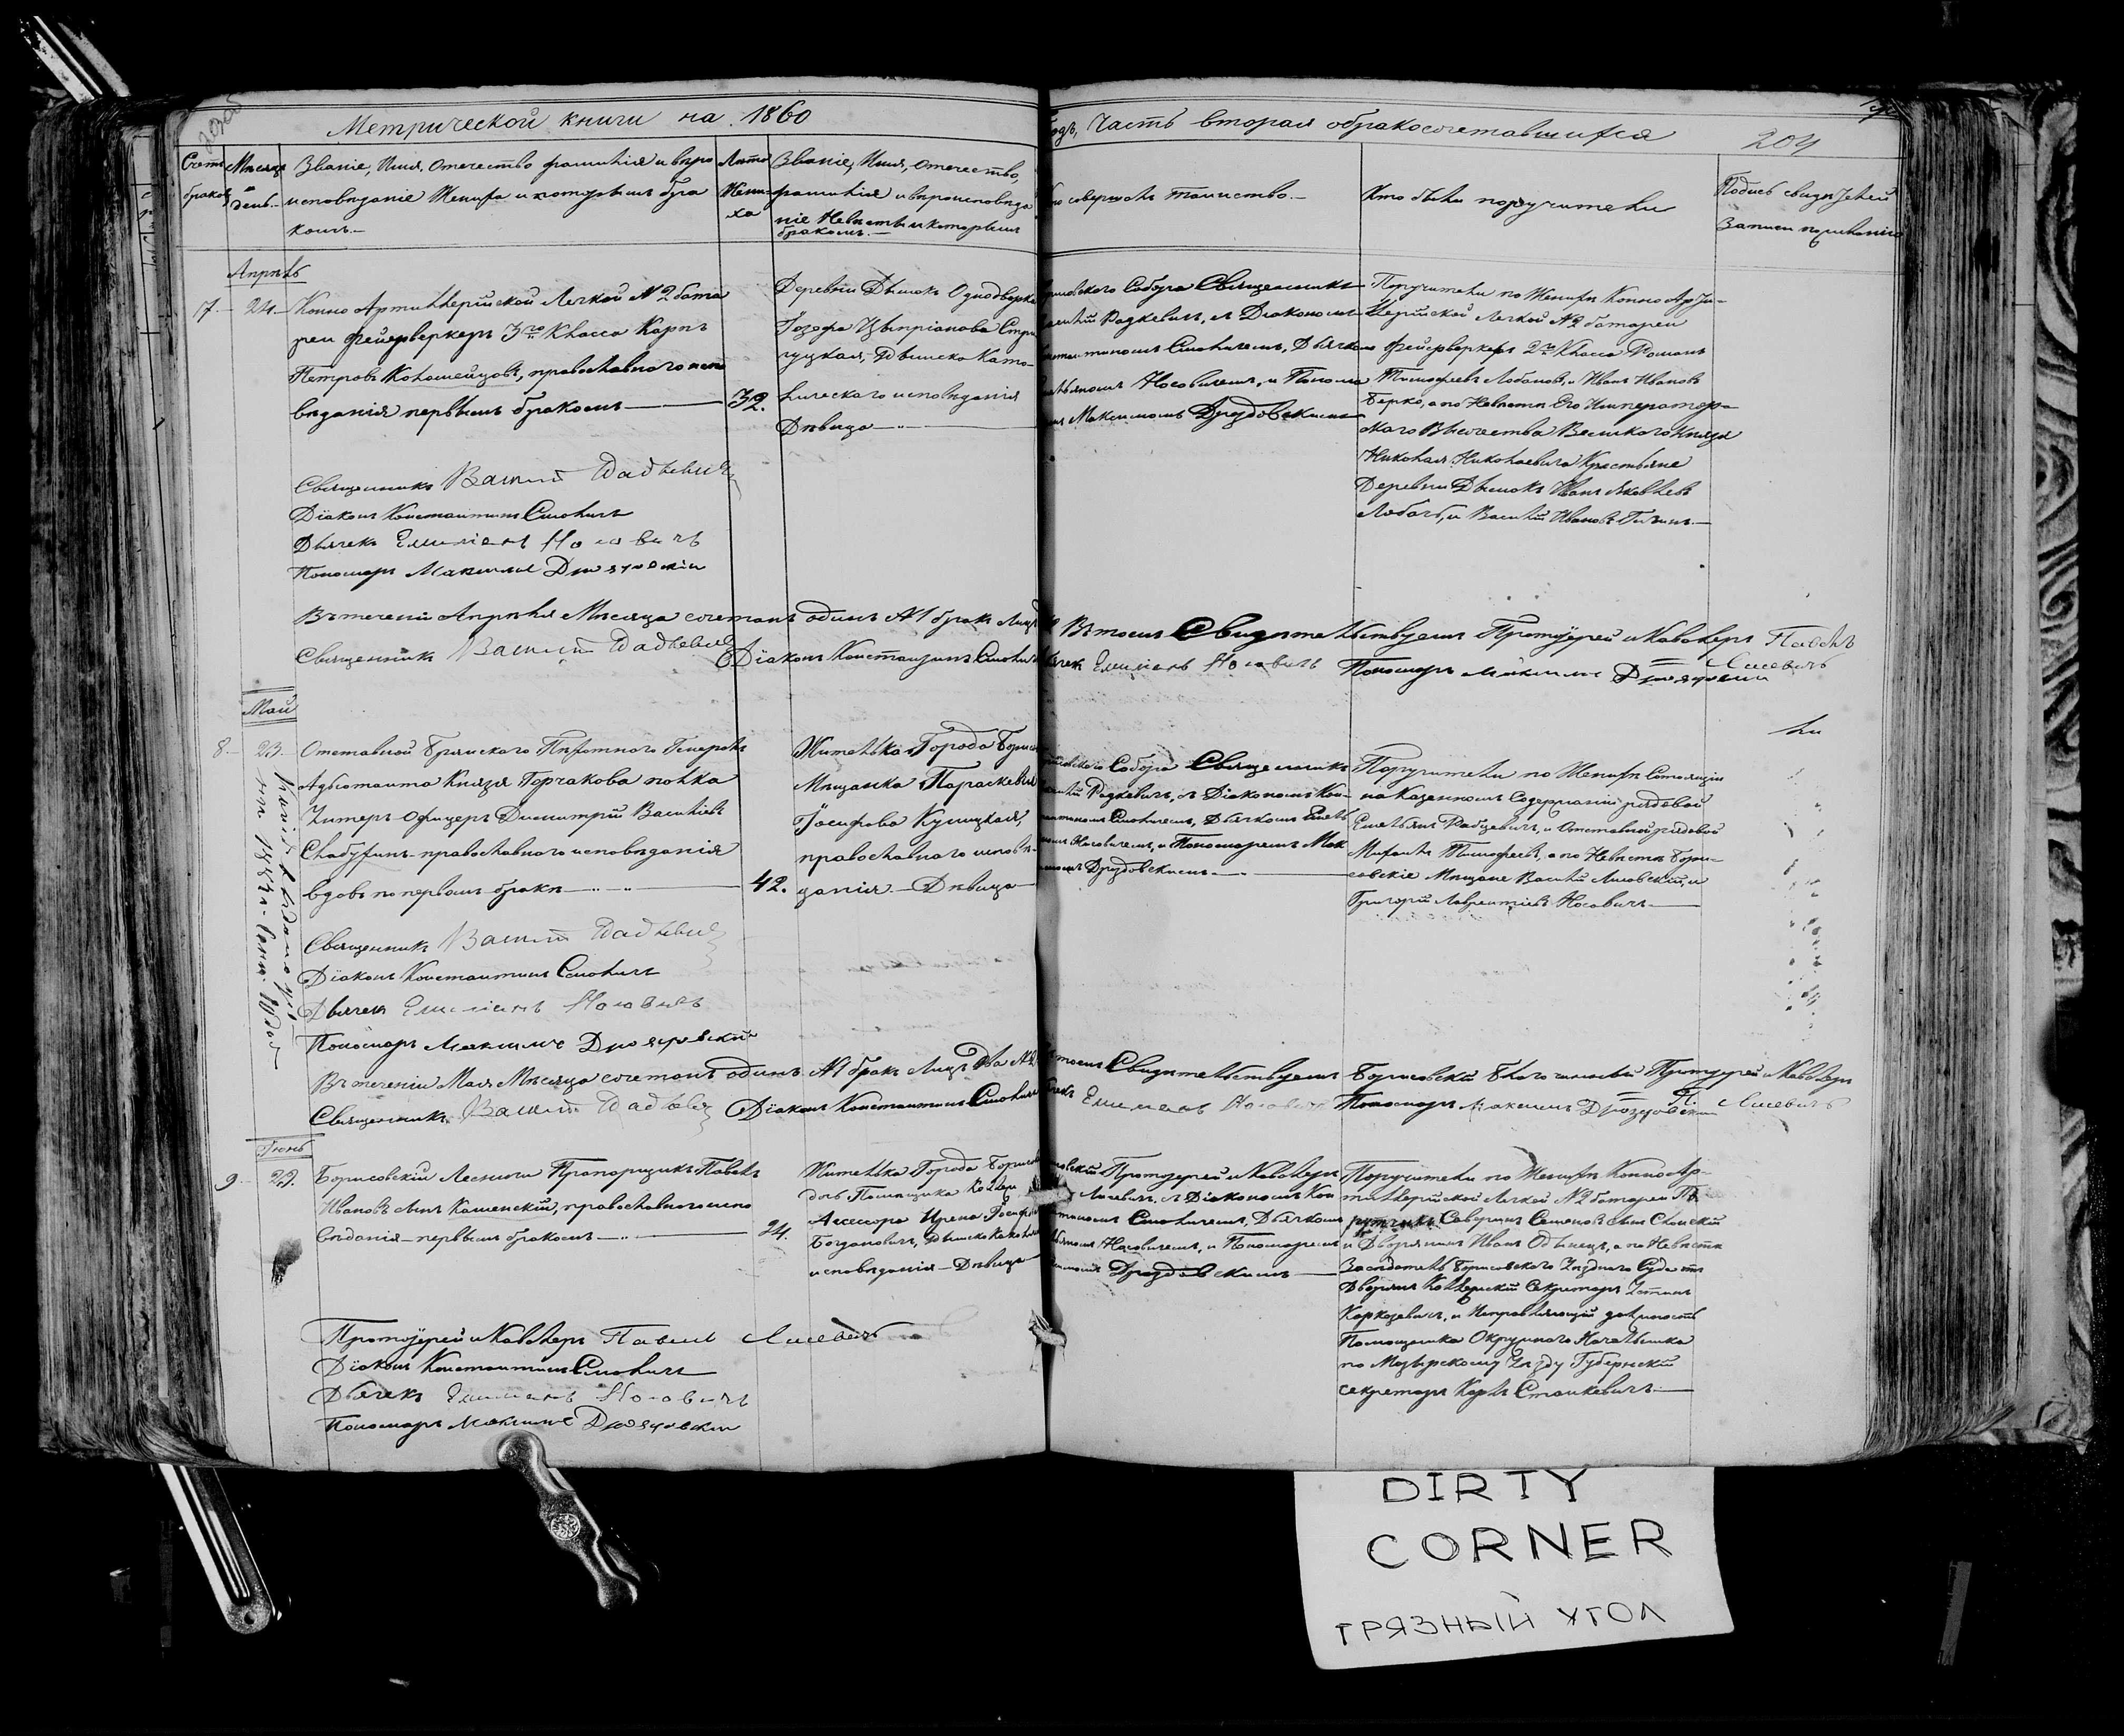 Метрической книги на 1860
годъ, Часть вторая о бракосочетавшихся
209
Счетъ браковъ
Месяцъ и день
Званіе, Имя, Отечество фамилія и веро
исповеданіе Жениха и которымъ бра
комъ.—
Лета Жени-ха
Званіе, Имя, Отечество,
фамилія и вероисповеда
ніе Невесты и которым
бракомъ.—
совершалъ таинство.—
Кто были поручители
Подпись свидетелей
Записи по желанію
Апрель
7. 24.
Конно Артиллерійской Легкой №2 бата
реи фейерверкеръ 3го Класса Карпъ
Петровъ Коломейцовъ, православного испо
веданія первымъ бракомъ
32.
Деревни Дымокъ Однодворка
Іозефа Ципріанова
Римско Като-
лическаго исповеданія
Девица
Собора Священникъ
Радкевичъ, съ Діакономъ
Смоличемъ, Дьячкомъ
Носовичемъ, и Понома
Максимомъ Дроздовскимъ
Поручители по Женихе Конно Арти-
лерійской Легкой №2 батареи
фейерверкеръ 2го Класса Романъ
Тимофеевъ Лобановъ, и Иванъ Ивановъ
Берко, а по Невесте Его Император-
скаго Высочества Великого Князя
Николая Николаевича Крестьяне
Деревни Дымокъ Иванъ Яковлевъ
Лобачъ, и Василій Ивановъ
Священникъ Василій Радкевичъ
Діаконъ Константинъ Смоличъ
Дьячек Емиліанъ Носовичъ
Пономарь Максимъ Дроздовскій
Въ теченіи Апреля Месяца сочетанъ одинъ №1 бракъ Лицъ
Въ томъ Свидетельствуемъ Протоіерей и Кавалеръ Павелъ
Лисевичъ
Священникъ Василій Радкевичъ Діаконъ Константинъ Смоличъ
Дьячек Емиліанъ Носовичъ Пономарь Максимъ Дроздовскій
Май
8. 23.
Отставной Брянского Пехотного Генералъ
Адъютанта Князя Горчакова полка
Унтеръ Офицеръ Димитрій Васильевъ
православного исповеданія
вдовъ по первомъ браке
42.
Жителька Города Борисова
Мещанка Параскевия
Іосифова Кулицкая,
православного исповe-
данія— Девица
Собора Священникъ
Радкевичъ, съ Діакономъ Кон-
Смоличемъ, Дьячкомъ Емель
Носовичемъ, и Пономаремъ Мак
Дроздовскимъ
Поручители по Женихе Состоящій
на Казенномъ Содержаніи рядовой
Емельянъ Рабцевичъ, и Отставной рядовой
Михаилъ Тимофеевъ, а по Невесте Бори-
совскіе Мещане Василій Лисовскій, и
Григорій Лаврентіевъ Носовичъ
Священникъ Василій Радкевичъ
Діаконъ Константинъ Смоличъ
Дьячек Емиліанъ Носовичъ
Пономарь Максимъ Дроздовскій
Въ теченіи Мая Месяца сочетанъ одинъ №1 бракъ Лицъ два №2
Свидетельствуемъ Борисовскій Благочинный Протоіерей и Кавалеръ
П. Лисевичъ
Священникъ Василій Радкевичъ Діаконъ Константинъ Смоличъ
Емиліанъ Носовичъ Пономарь Максимъ Дроздовскій
Іюнь
9. 29.
Борисовскій Лесничій Прапорщикъ Павелъ
Ивановъ сынъ Каменскій, православного испо
веданія— первымъ бракомъ
24.
Жителька Города Борисова
дочь Помещика Коллеж
Асессора Ирена Іосифова
Богдановичъ, Римско Католич
исповеданія— Девица
Протоіерей и Кавалеръ
Лисевичъ, съ Діакономъ Кон
Смоличемъ, Дьячкомъ
Носовичемъ, и Пономаремъ
Дроздовскимъ
Поручители по Женихе Конно Ар-
тиллерійской Легкой №2 батареи По
ручикъ Северинъ Семеновъ сынъ
и Дворянинъ Иванъ Одынецъ, а по Невесте
Заседатель Борисовского Уезднаго Суда отъ
Дворянъ Коллежскій Секретарь Устинъ
Корказевичъ, и Исправляющій должность
Помощника Окружного Начальника
по Мозырскому Уезду Губернскій
секретарь Карлъ Станкевичъ
Протоіерей и Кавалеръ Павелъ Лисевичъ
Діаконъ Константинъ Смоличъ
Дьячек Емиліанъ Носовичъ
Пономарь Максимъ Дроздовскій
DIRTY
CORNER
ГРЯЗНЫЙ УГОЛ